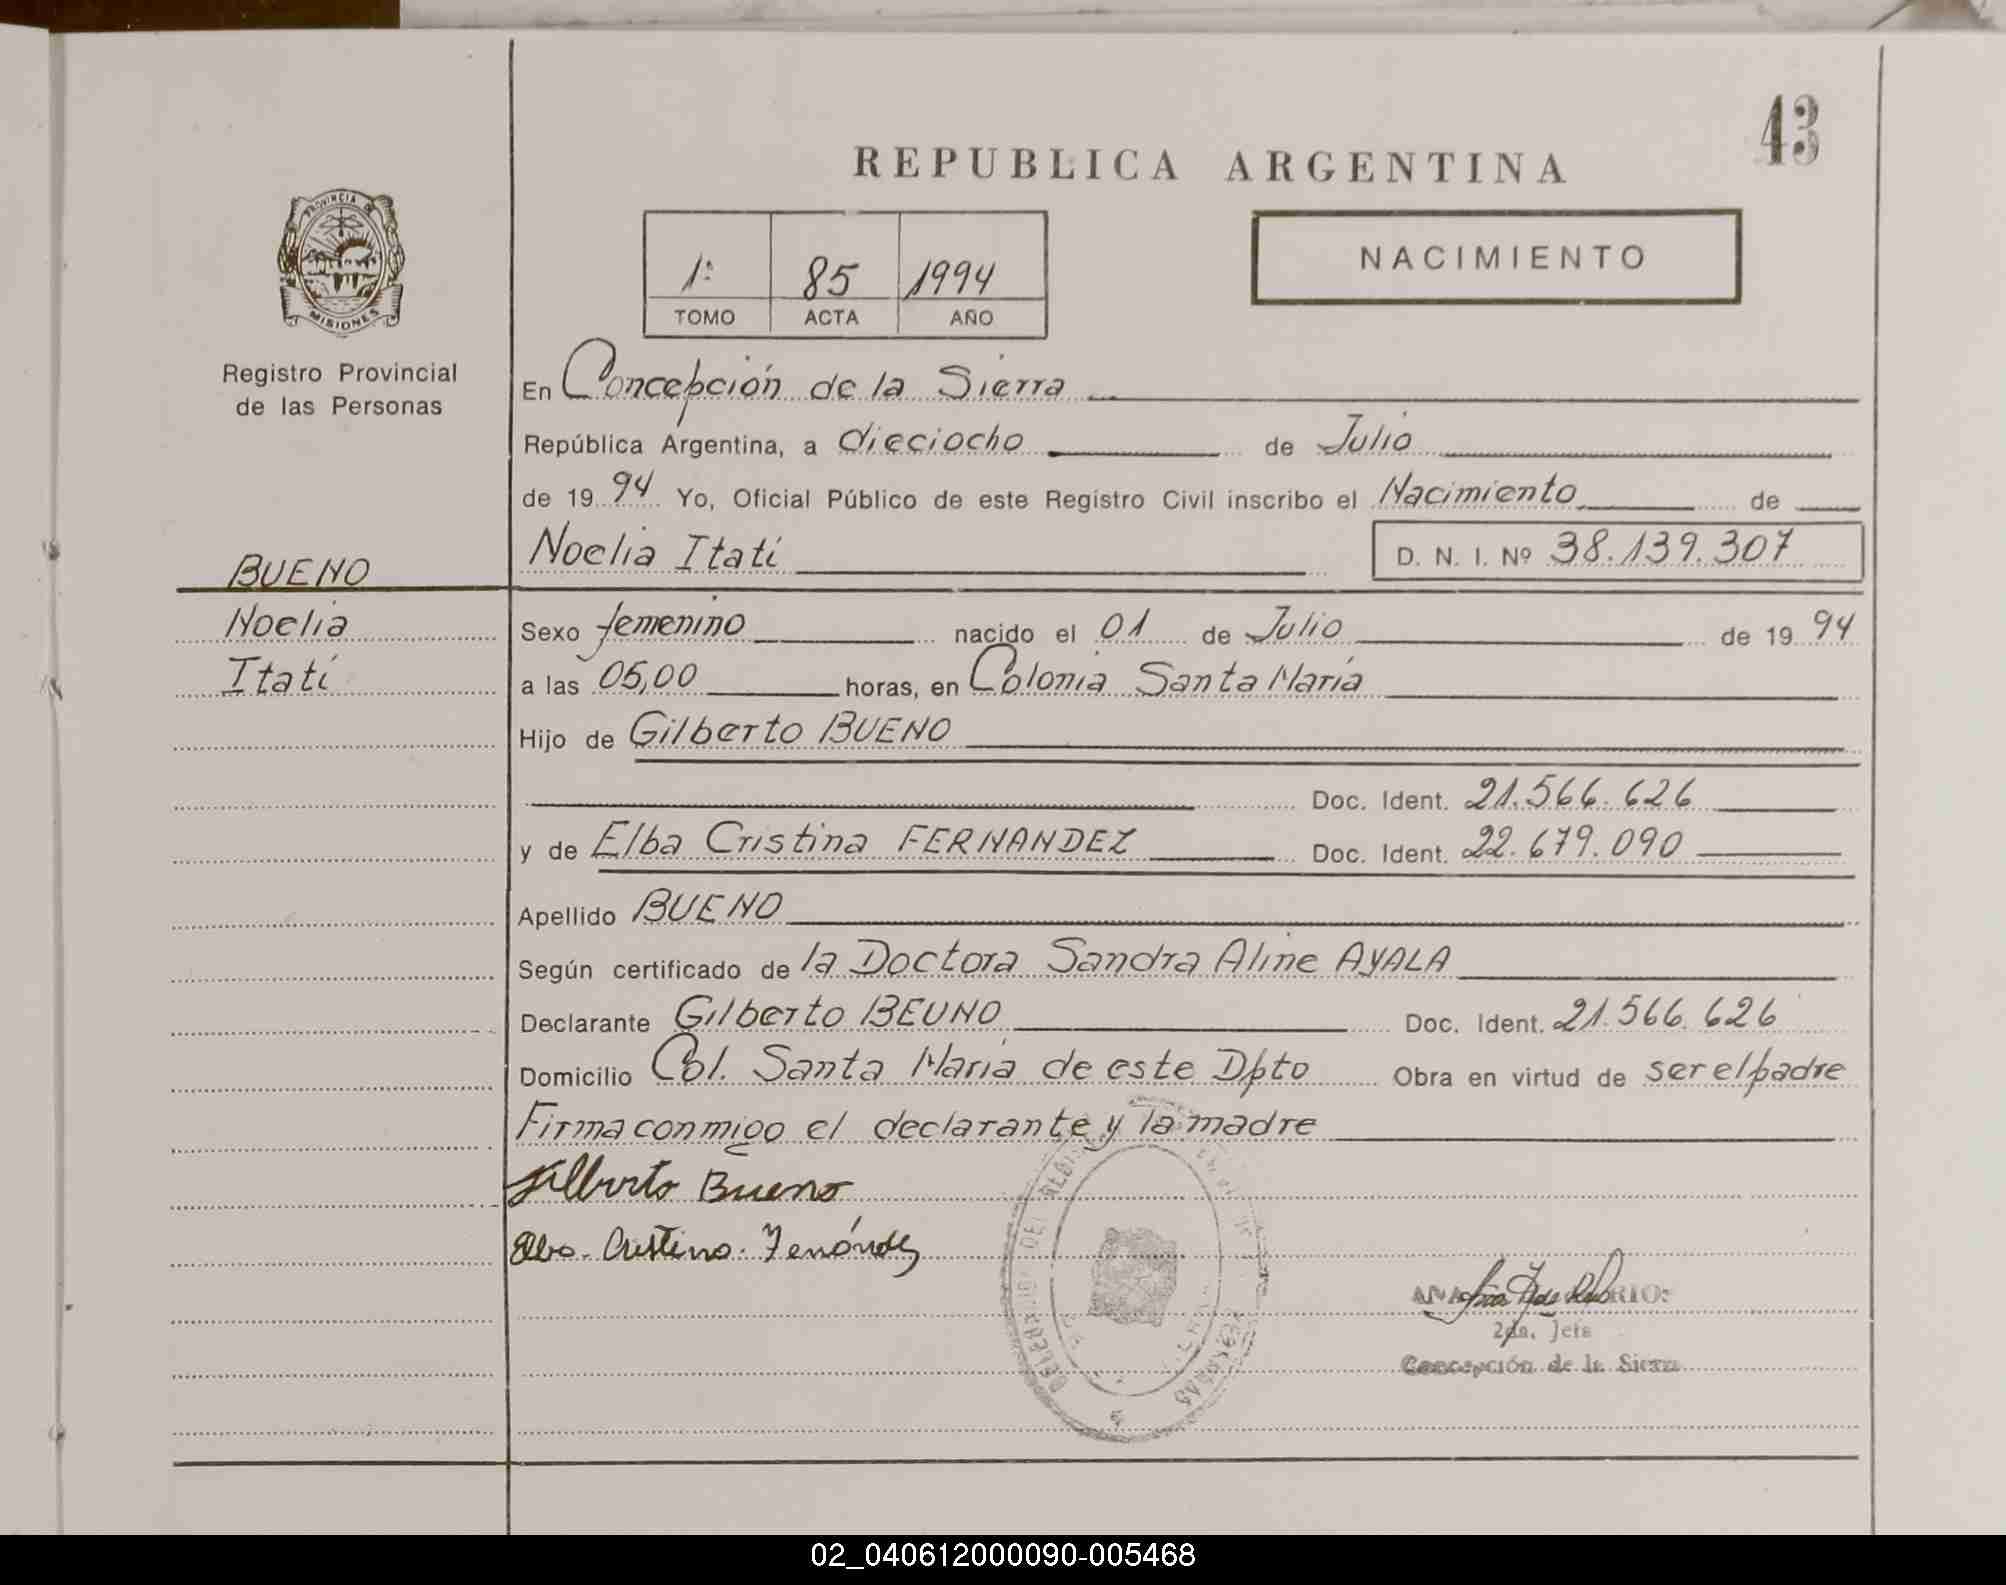 43
REPUBLICA ARGENTINA
PROVINCIA DE
MISIONES
Registro Provincial
de las Personas
1º 85 1994
TOMO ACTA AÑO
NACIMIENTO
En Concepción de la Sierra
República Argentina, a dieciocho de Julio
de 19 94 Yo, Oficial Público de este Registro Civil inscribo el Nacimiento de
Noelia Itatí D. N. I. Nº 38.139.307
BUENO
Noelia
Itatí
Sexo femenino nacido el 01 de Julio de 19 94
a las 05,00 horas, en Colonia Santa María
Hijo de Gilberto BUENO
Doc. Ident. 21.566.626
y de Elba Cristina FERNANDEZ Doc. Ident. 22.679.090
Apellido BUENO
Según certificado de la Doctora Sandra Aline AYALA
Declarante Gilberto BEUNO Doc. Ident. 21.566.626
Domicilio Col. Santa María de este Dpto Obra en virtud de ser el padre
Firma conmigo el declarante y la madre
Gilberto Bueno
Elba Cristina Fernández
2da. Jefa
Concepción de la Sierra
02_040612000090-005468